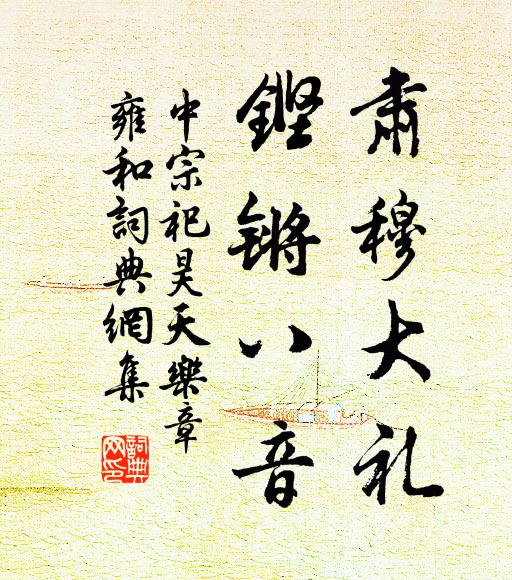 肃穆大礼
鏗锵八音
中宗祀昊天樂章
雍和詞典網集
詞典
网印